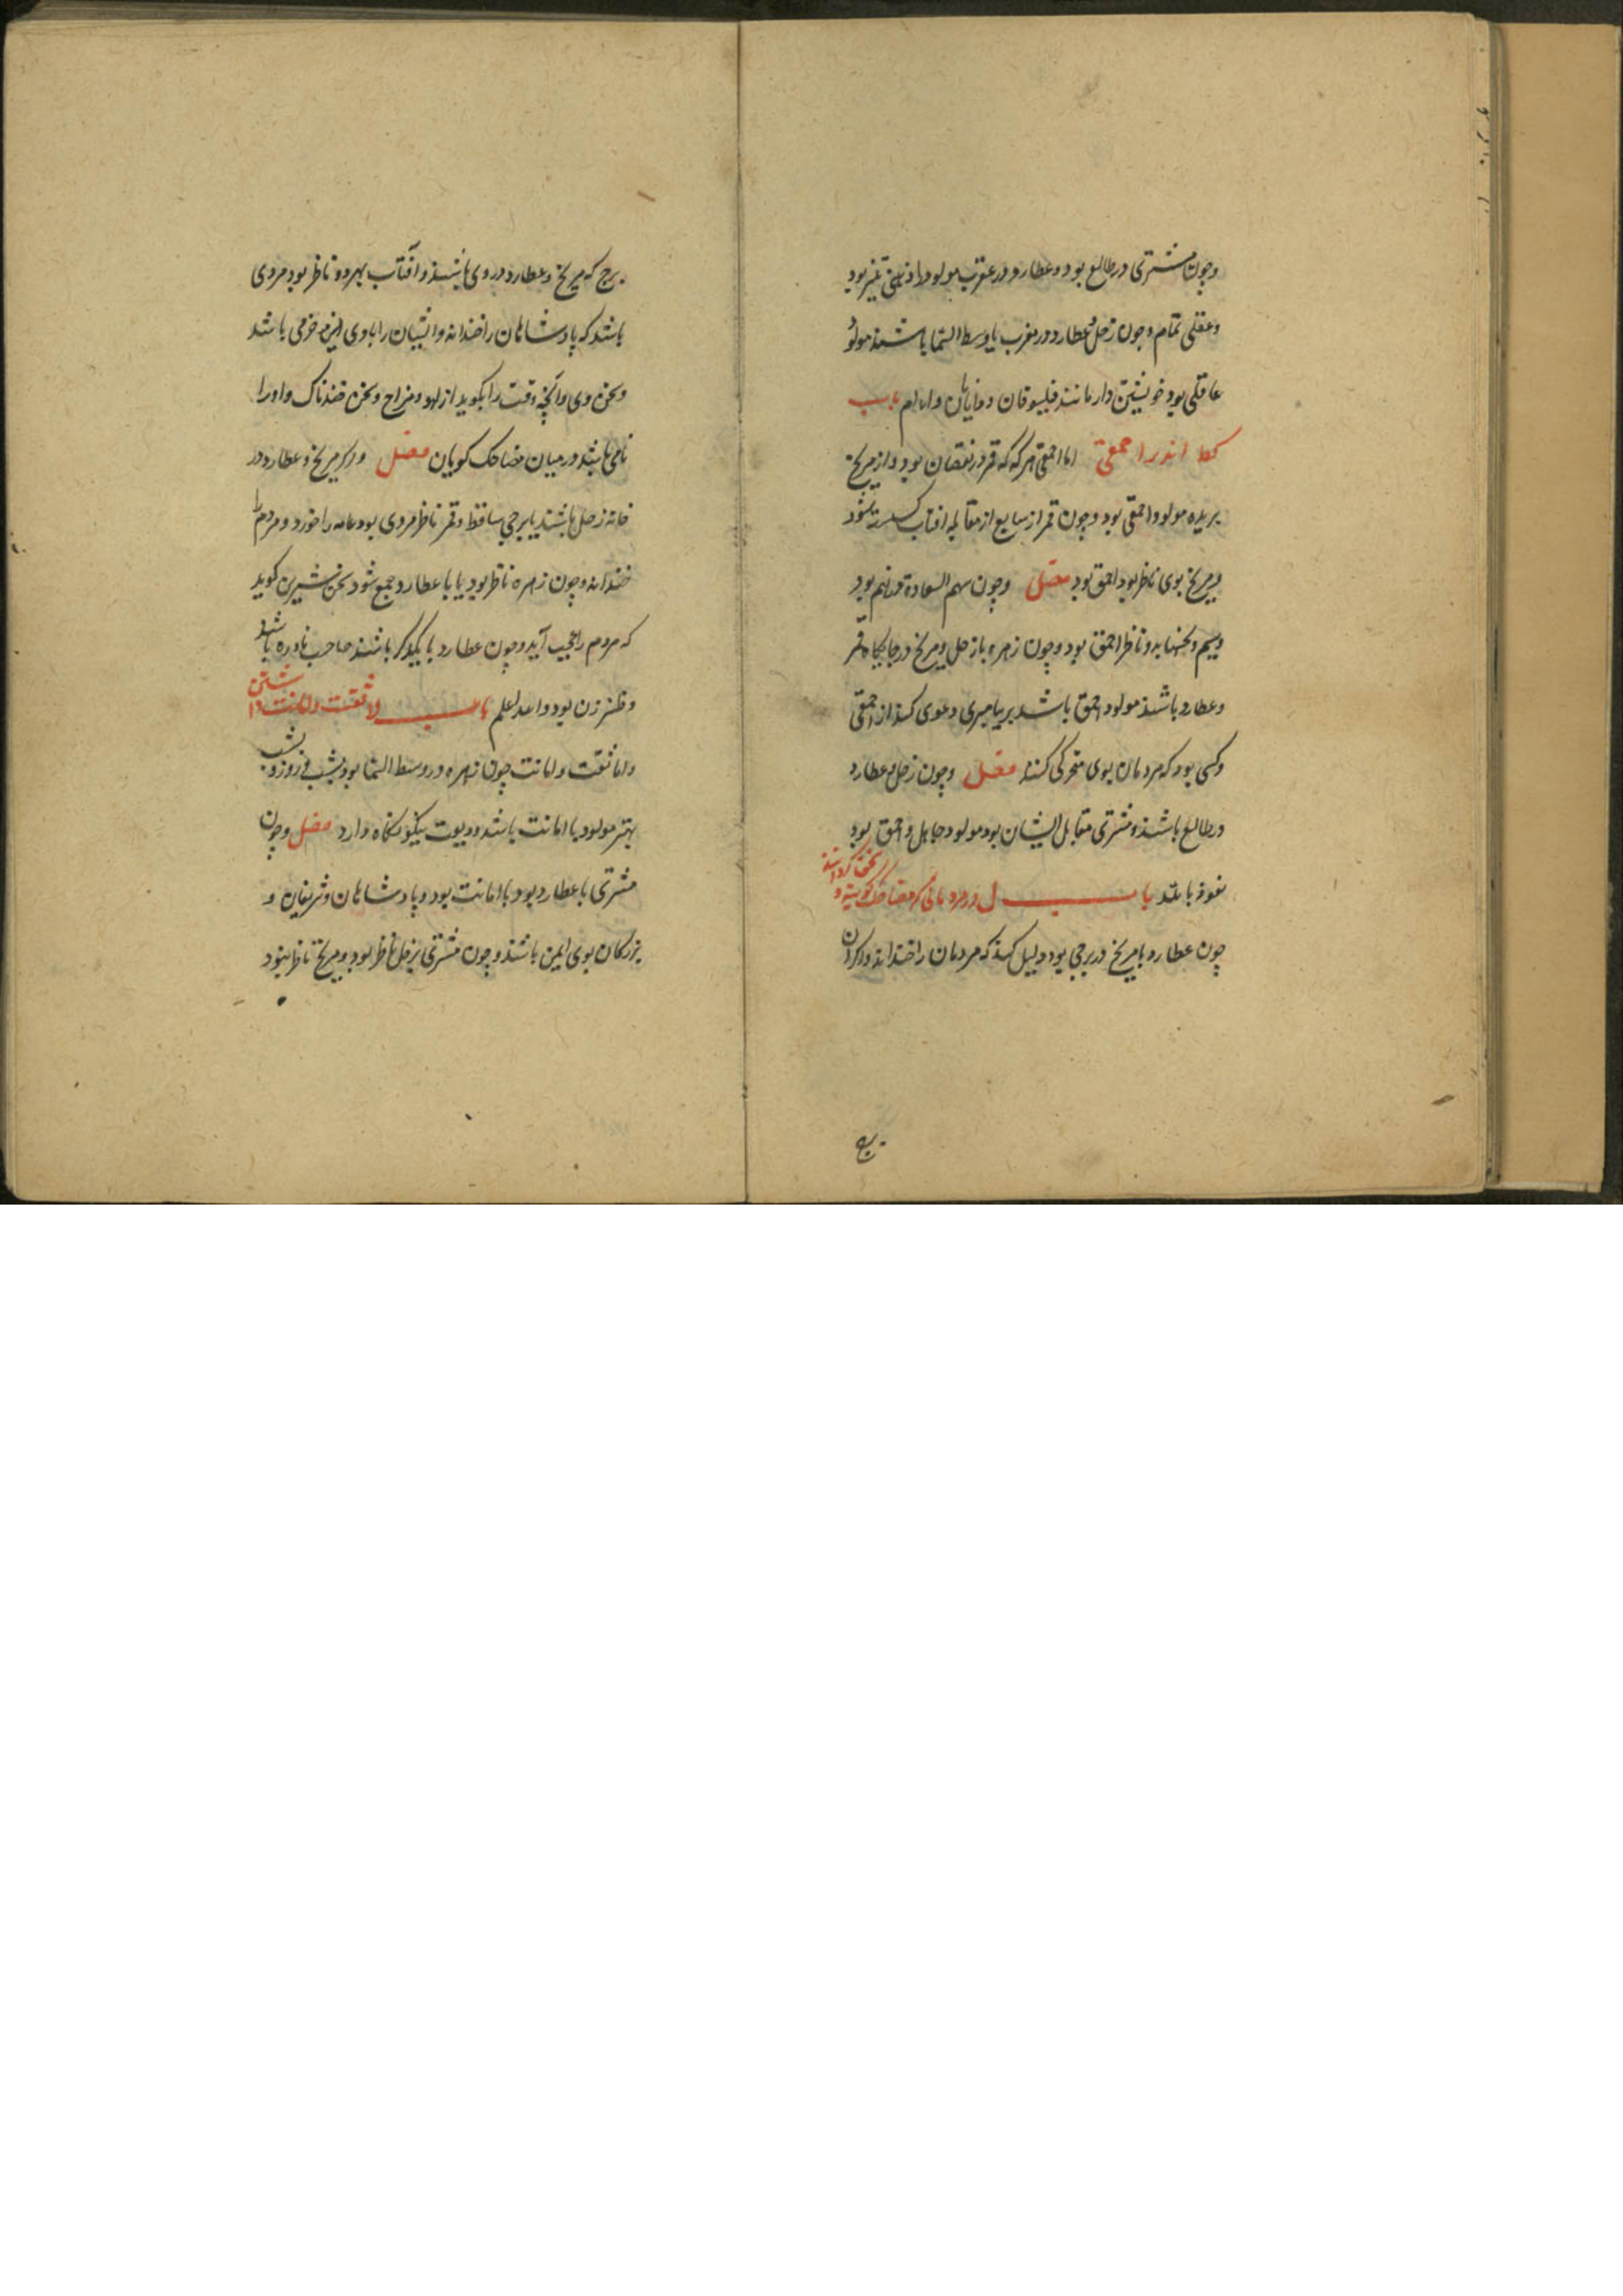 وچون مشتری در طالع بود و عطارد در عقرب مولود را ذهنی تیز بود
وعقلی تمام وچون زحل وعطارد در مغرب یا وسط السما باشند مولود
عاقلی بود خویشتن دار مانند فیلسوفان ودانایان باب
اندر احمقی اما احمقی هرکه که قمر در نقصان بود واز مریخ
بریده مولود احمقی بود وچون قمر از سابع از مقابله افتاب کسسته شود
ومریخ بوی ناظر بود احمق بود فصل وچون سهم السعادة در نهم بود
ونحسها بدو ناظر احمق بود وچون زهره با زحل ومریخ در جایکاه قمر
وعطارد باشند مولود احمق باشد بر پیامبری دعوی کند از احمقی
وکسی بود که مردمان بوی سخرکی کنند فصل وچون زحل وعطارد
در طالع باشند ومشتری مقابل ایشان بود مولود جاهل واحمق بود
نعوذ بالله باب ل در مردمانی که مضاحک کویند و
چون عطارد با مریخ در برجی بود دلیل کند که مردمان را خنداند واکر ان
برج که مریخ وعطارد در وی باشند وآفتاب بهر دو ناظر بود مردی
باشد که پادشاهان را خنداند وایشیان را با وی خرمی باشد
وسخن وی وآنچه وقت را بکوید از لهو ومزاح وسخن خندناک واورا
نامی باشد در میان مضاحک کویان فصل واکر مریخ وعطارد در
خانه زحل باشند یا برجی ساقط وقمر ناظر مردی بود عامه را خورد ومردم را
خنداند وچون زهره ناظر بود یا با عطارد جمع شود سخن شیرین کوید
که مردم را عجیب آید وچون عطارد با یکدیکر باشند صاحب نادره باشد
وطنز زن بود والله اعلم باب لا ثقت وامانت داشتن
واما ثقت وامانت چون زهره در وسط السما بود بشب وروز وبشب
بهتر مولود با امانت باشد ودیعت نیکو نکاه دارد فصل وچون
مشتری با عطارد بود با امانت بود وپادشاهان وشریفان و
بزرکان بوی ایمن باشند وچون مشتری بزحل ناظر بود ومریخ ناظر نبود
برج